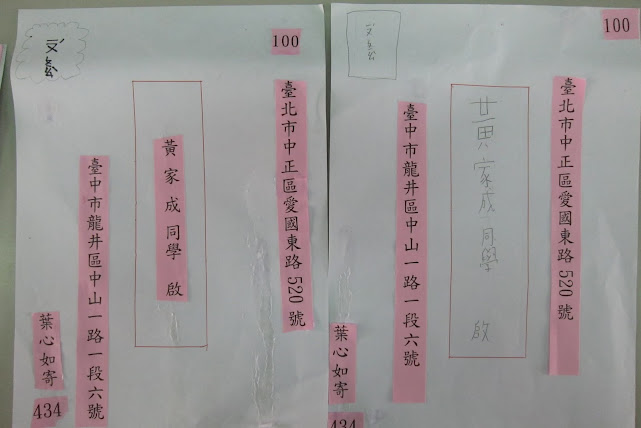 100
臺北市中正區愛國東路520號
黃家成同學 啟
臺中市龍井區中山一路一段六號
葉心如寄
434
100
臺北市中正區愛國東路520號
黃家成同學 啟
臺中市龍井區中山一路一段六號
葉心如寄
434